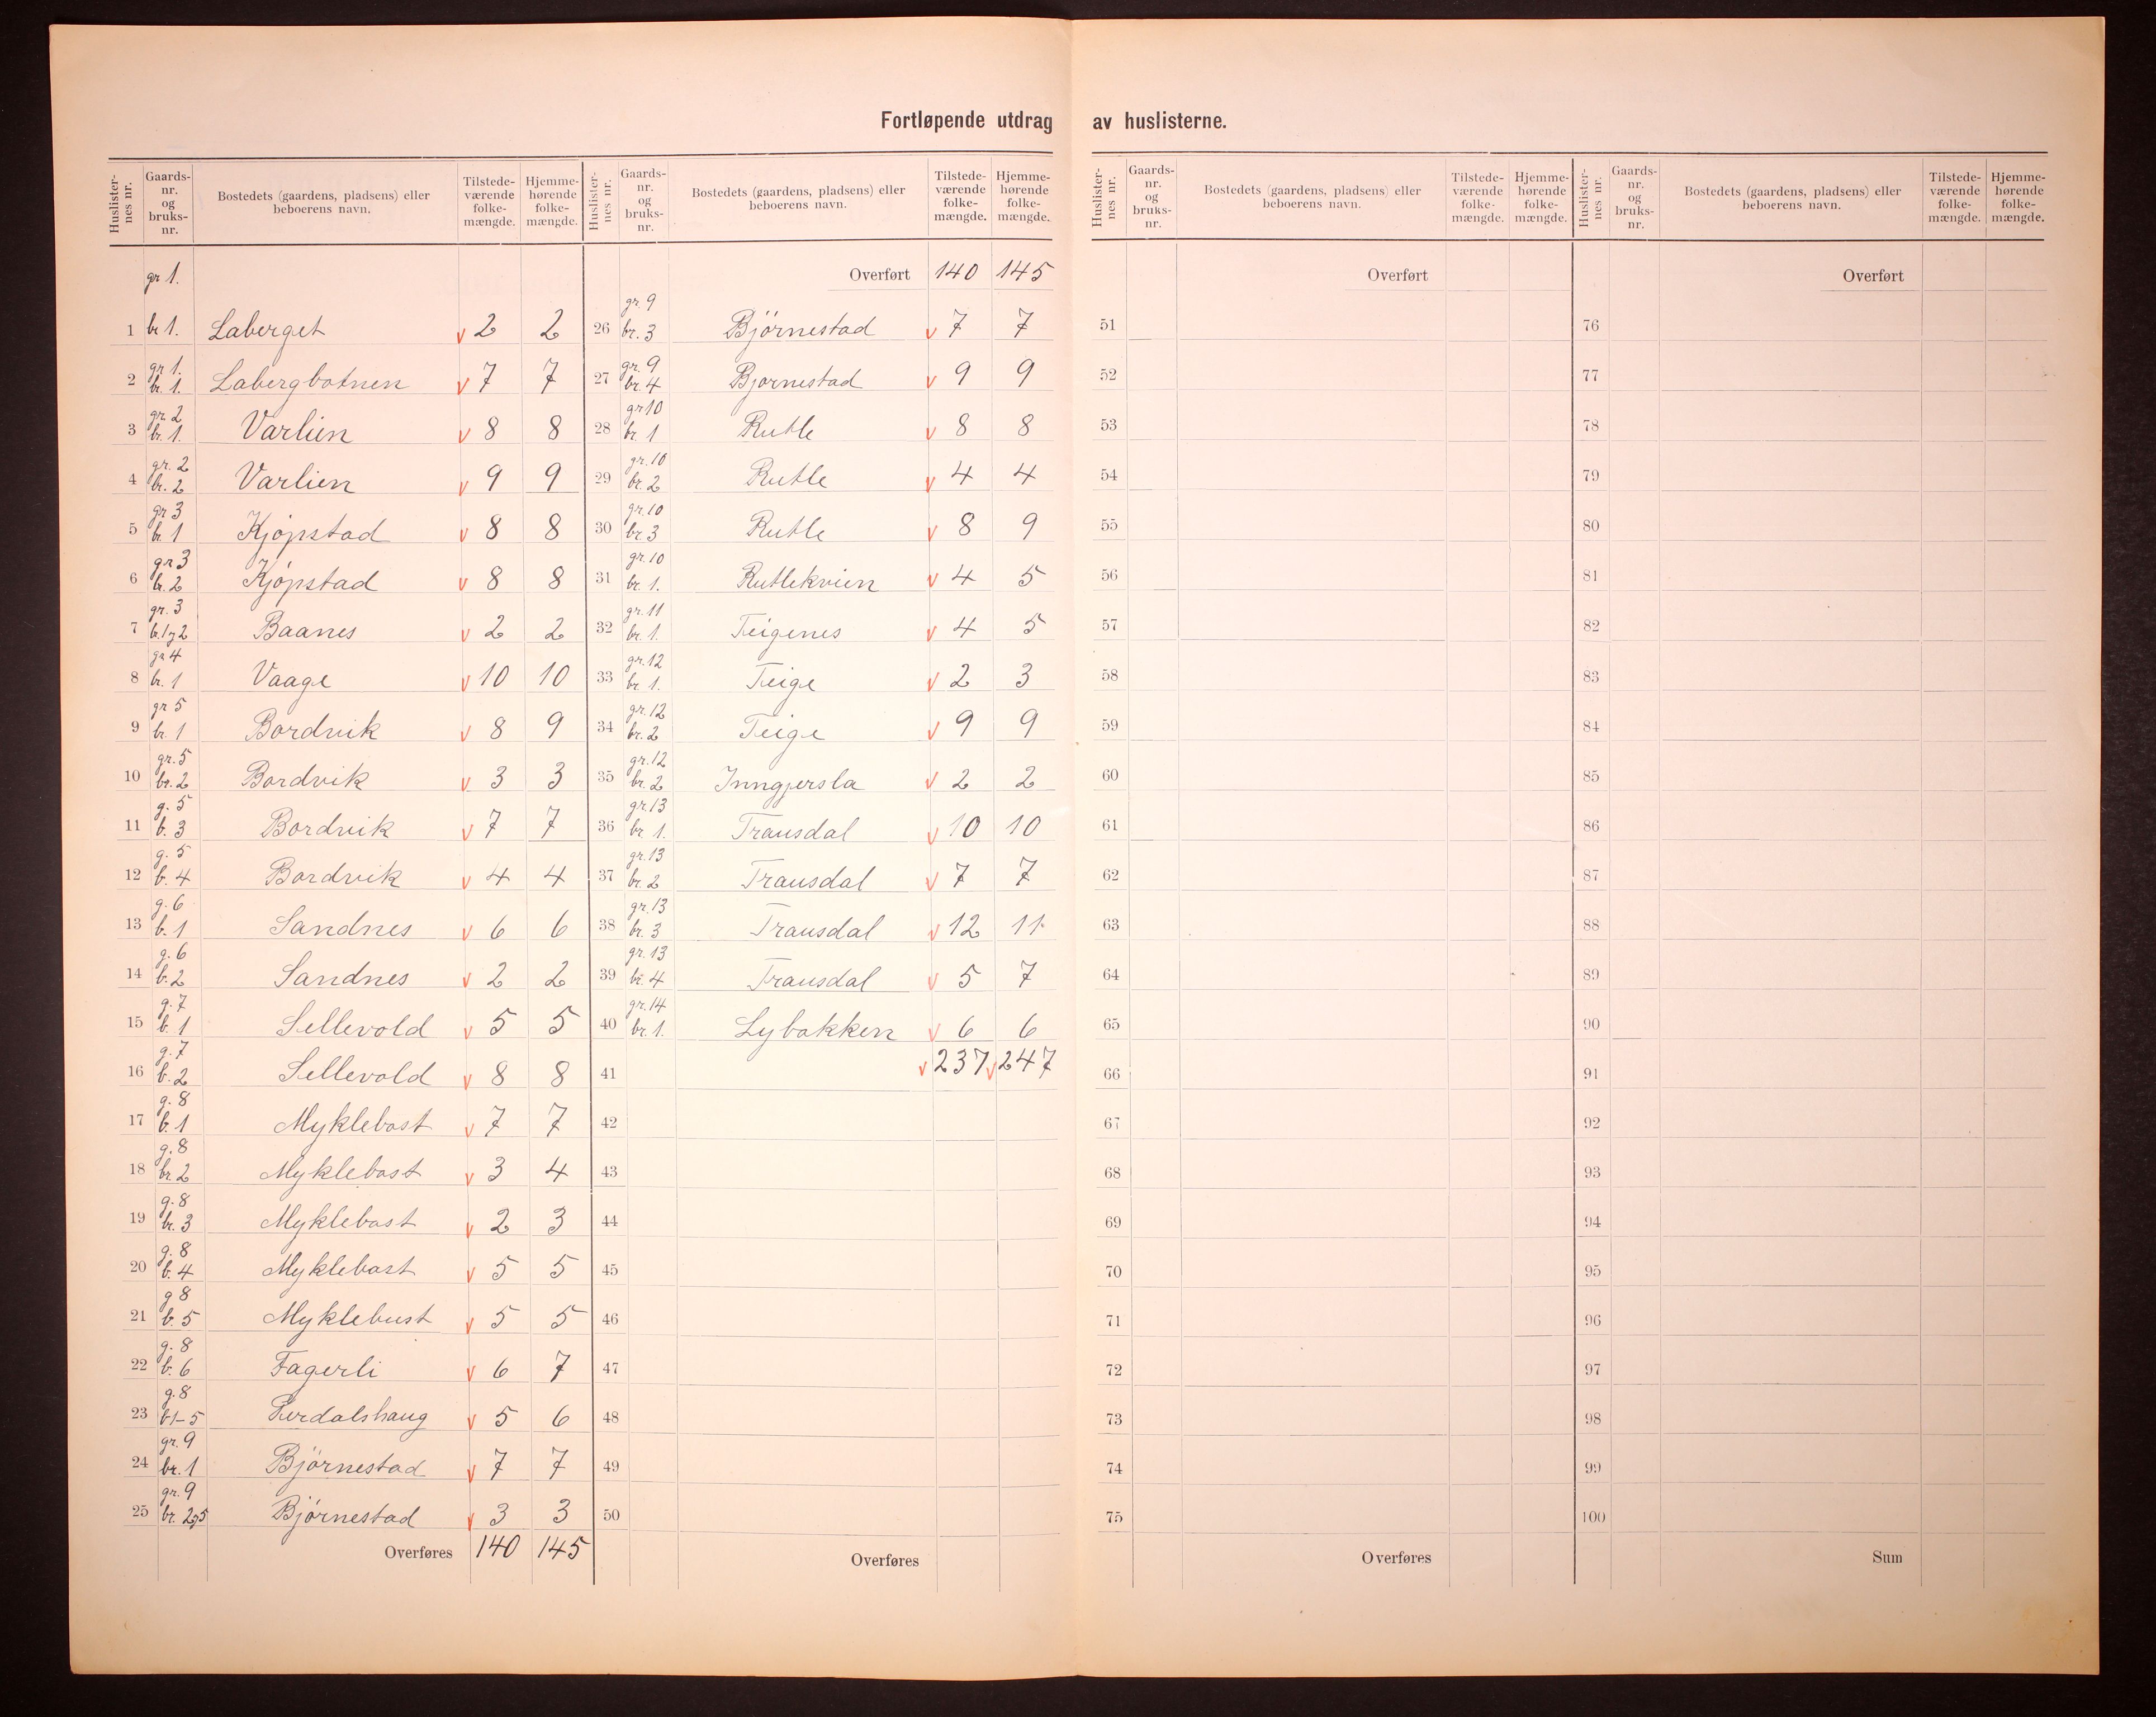 Fortløpende utdrag av huslisterne.
Huslister-nes nr. Gaards-nr. og bruks-nr. Bostedets (gaardens, pladsens) eller beboerens navn. Tilstede-værende folke-mængde. Hjemme-hørende folke-mængde.
gr 1.
1 br 1. Laberget v 2 2
2 gr 1. br. 1. Labergbotnen v 7 7
3 gr 2 br. 1. Varlien v 8 8
4 gr. 2 br. 2 Varlien v 9 9
5 gr 3 br. 1 Kjøpstad v 8 8
6 gr 3 br. 2 Kjøpstad v 8 8
7 gr. 3 br. 1 og 2 Baanes v 2 2
8 gr 4 br. 1 Vaage v 10 10
9 gr 5 br. 1 Bordvik v 8 9
10 gr. 5 br. 2 Bordvik v 3 3
11 g. 5 b. 3 Bordvik v 7 7
12 g. 5 b. 4 Bordvik v 4 4
13 g. 6 b. 1 Sandnes v 6 6
14 g. 6 b. 2 Sandnes v 2 2
15 g. 7 b. 1 Sellevold v 5 5
16 g. 7 b. 2 Sellevold v 8 8
17 g. 8 b. 1 Myklebost v 7 7
18 g. 8 br. 2 Myklebost v 3 4
19 g. 8 br. 3 Myklebost v 2 3
20 g. 8 b. 4 Myklebost v 5 5
21 g 8 b. 5 Myklebust v 5 5
22 g. 8 b. 6 Fagerli v 6 7
23 g. 8 b 1-5 v 5 6
24 gr. 9 br. 1 Bjørnestad v 7 7
25 gr. 9 br. 2 og 5 Bjørnestad v 3 3
Overføres 140 145
Huslister-nes nr. Gaards-nr. og bruks-nr. Bostedets (gaardens, pladsens) eller beboerens navn. Tilstede-værende folke-mængde. Hjemme-hørende folke-mængde.
Overført 140 145
26 gr. 9 br. 3 Bjørnestad v 7 7
27 gr. 9 br. 4 Bjornestad v 9 9
28 gr 10 br. 1 Rutle v 8 8
29 gr. 10 br. 2 Rutle v 4 4
30 gr. 10 br. 3 Rutle v 8 9
31 gr. 10 br. 1. Rutlekvien v 4 5
32 gr. 11 br. 1. Teigenes v 4 5
33 gr. 12 br 1. Teige v 2 3
34 gr. 12 br. 2 Teige v 9 9
35 gr. 12 br. 2 Inngjersla v 2 2
36 gr. 13 br 1. Transdal v 10 10
37 gr. 13 br. 2 Transdal v 7 7
38 gr. 13 br. 3 Transdal v 12 11
39 gr. 13 br. 4 Transdal v 5 7
40 gr. 14 br. 1. Lybakken v 6 6
41 v 237 v 247
42
43
44
45
46
47
48
49
50
Overføres
Huslister-nes nr. Gaards-nr. og bruks-nr. Bostedets (gaardens, pladsens) eller beboerens navn. Tilstede-værende folke-mængde. Hjemme-hørende folke-mængde.
Overført
51
52
53
54
55
56
57
58
59
60
61
62
63
64
65
66
67
68
69
70
71
72
73
74
75
Overføres
Huslister-nes nr. Gaards-nr. og bruks-nr. Bostedets (gaardens, pladsens) eller beboerens navn. Tilstede-værende folke-mængde. Hjemme-hørende folke-mængde.
Overført
76
77
78
79
80
81
82
83
84
85
86
87
88
89
90
91
92
93
94
95
96
97
98
99
100
Sum